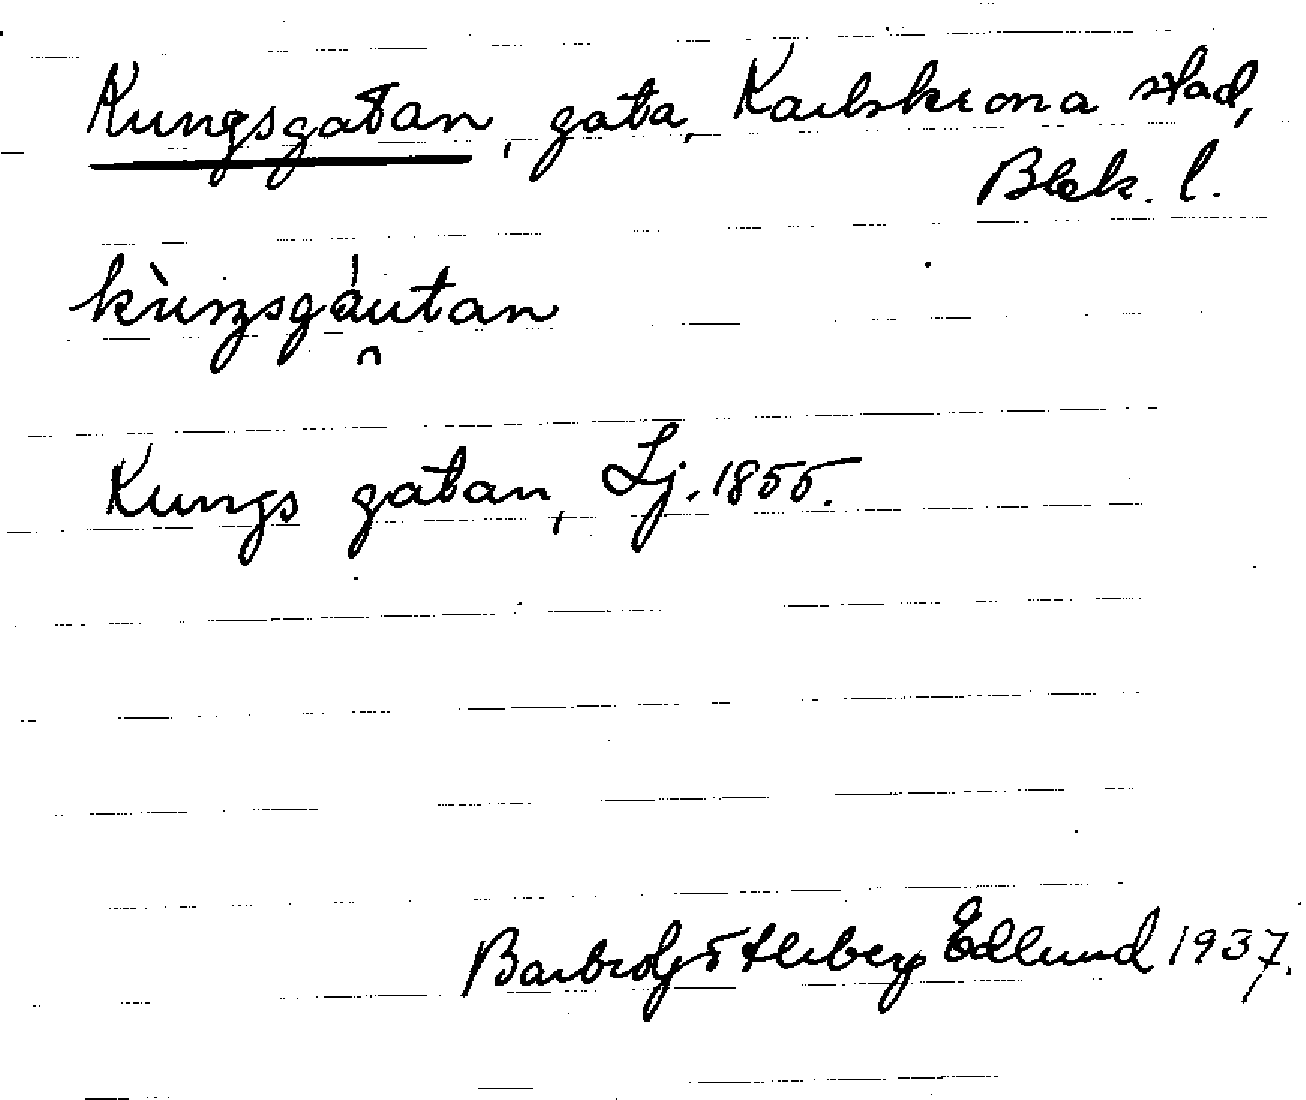 Kungsgatan, gata, Karlskrona stad,
Blek. l.
kùŋsgáutan
Kungs gatan, Lj. 1855.
Barbro Götleberg Edlund 1937.